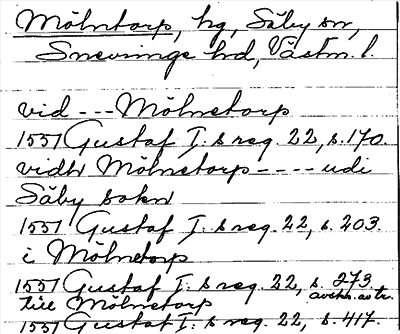 Mölntorp, hg, Säby sn,
Snevringe hd, Västm. l.
vid --- Mölnetorp
1551 Gustaf I:s reg. 22, s. 170.
vidh Mölnetorp ---- udi
Säby sokn
1551 Gustaf I:s reg. 22, s. 203.
i Mölnetorp
1551 Gustaf I:s reg. 22, s. 273.
till Mölnetorp
1551 Gustaf I:s reg. 22, s. 417.